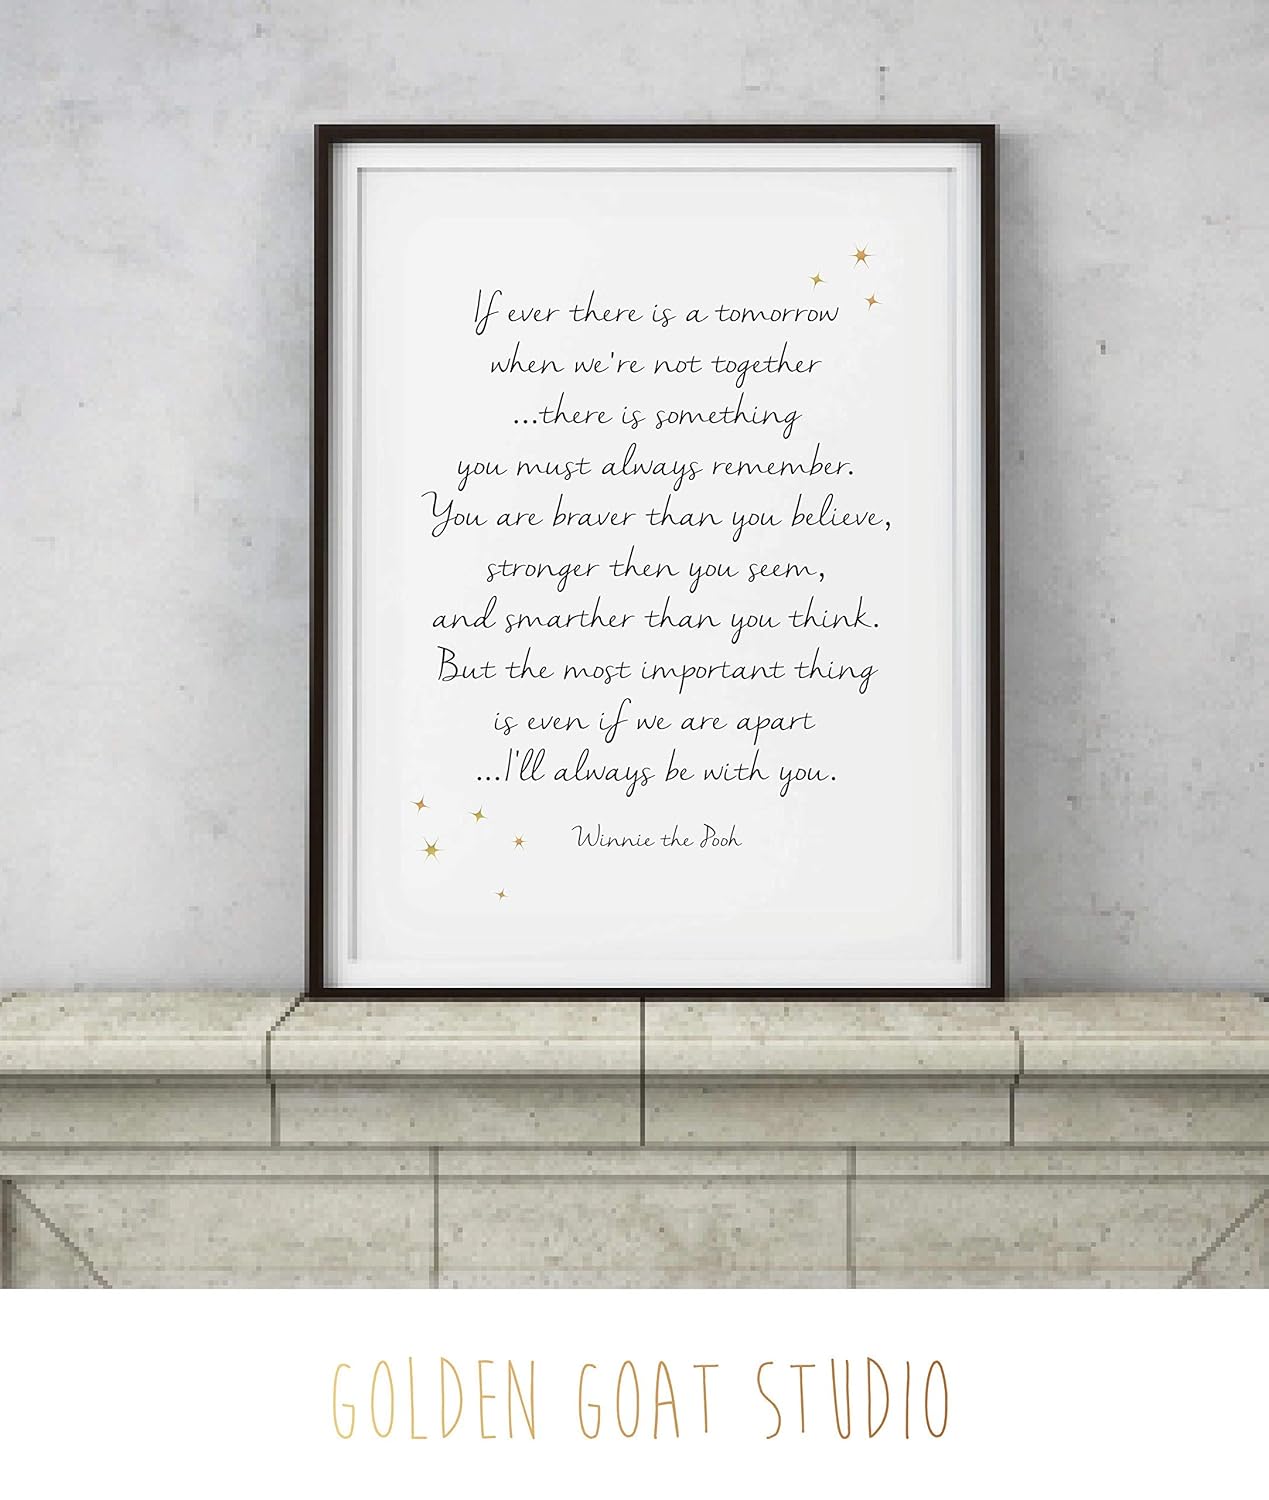 If ever there is a tomorrow
when we're not together
...there is something
you must always remember.
You are braver than you believe,
stronger then you seem,
and smarther than you think.
But the most important thing
is even if we are apart
...I'll always be with you.
Winnie the Pooh
GOLDEN GOAT STUDIO